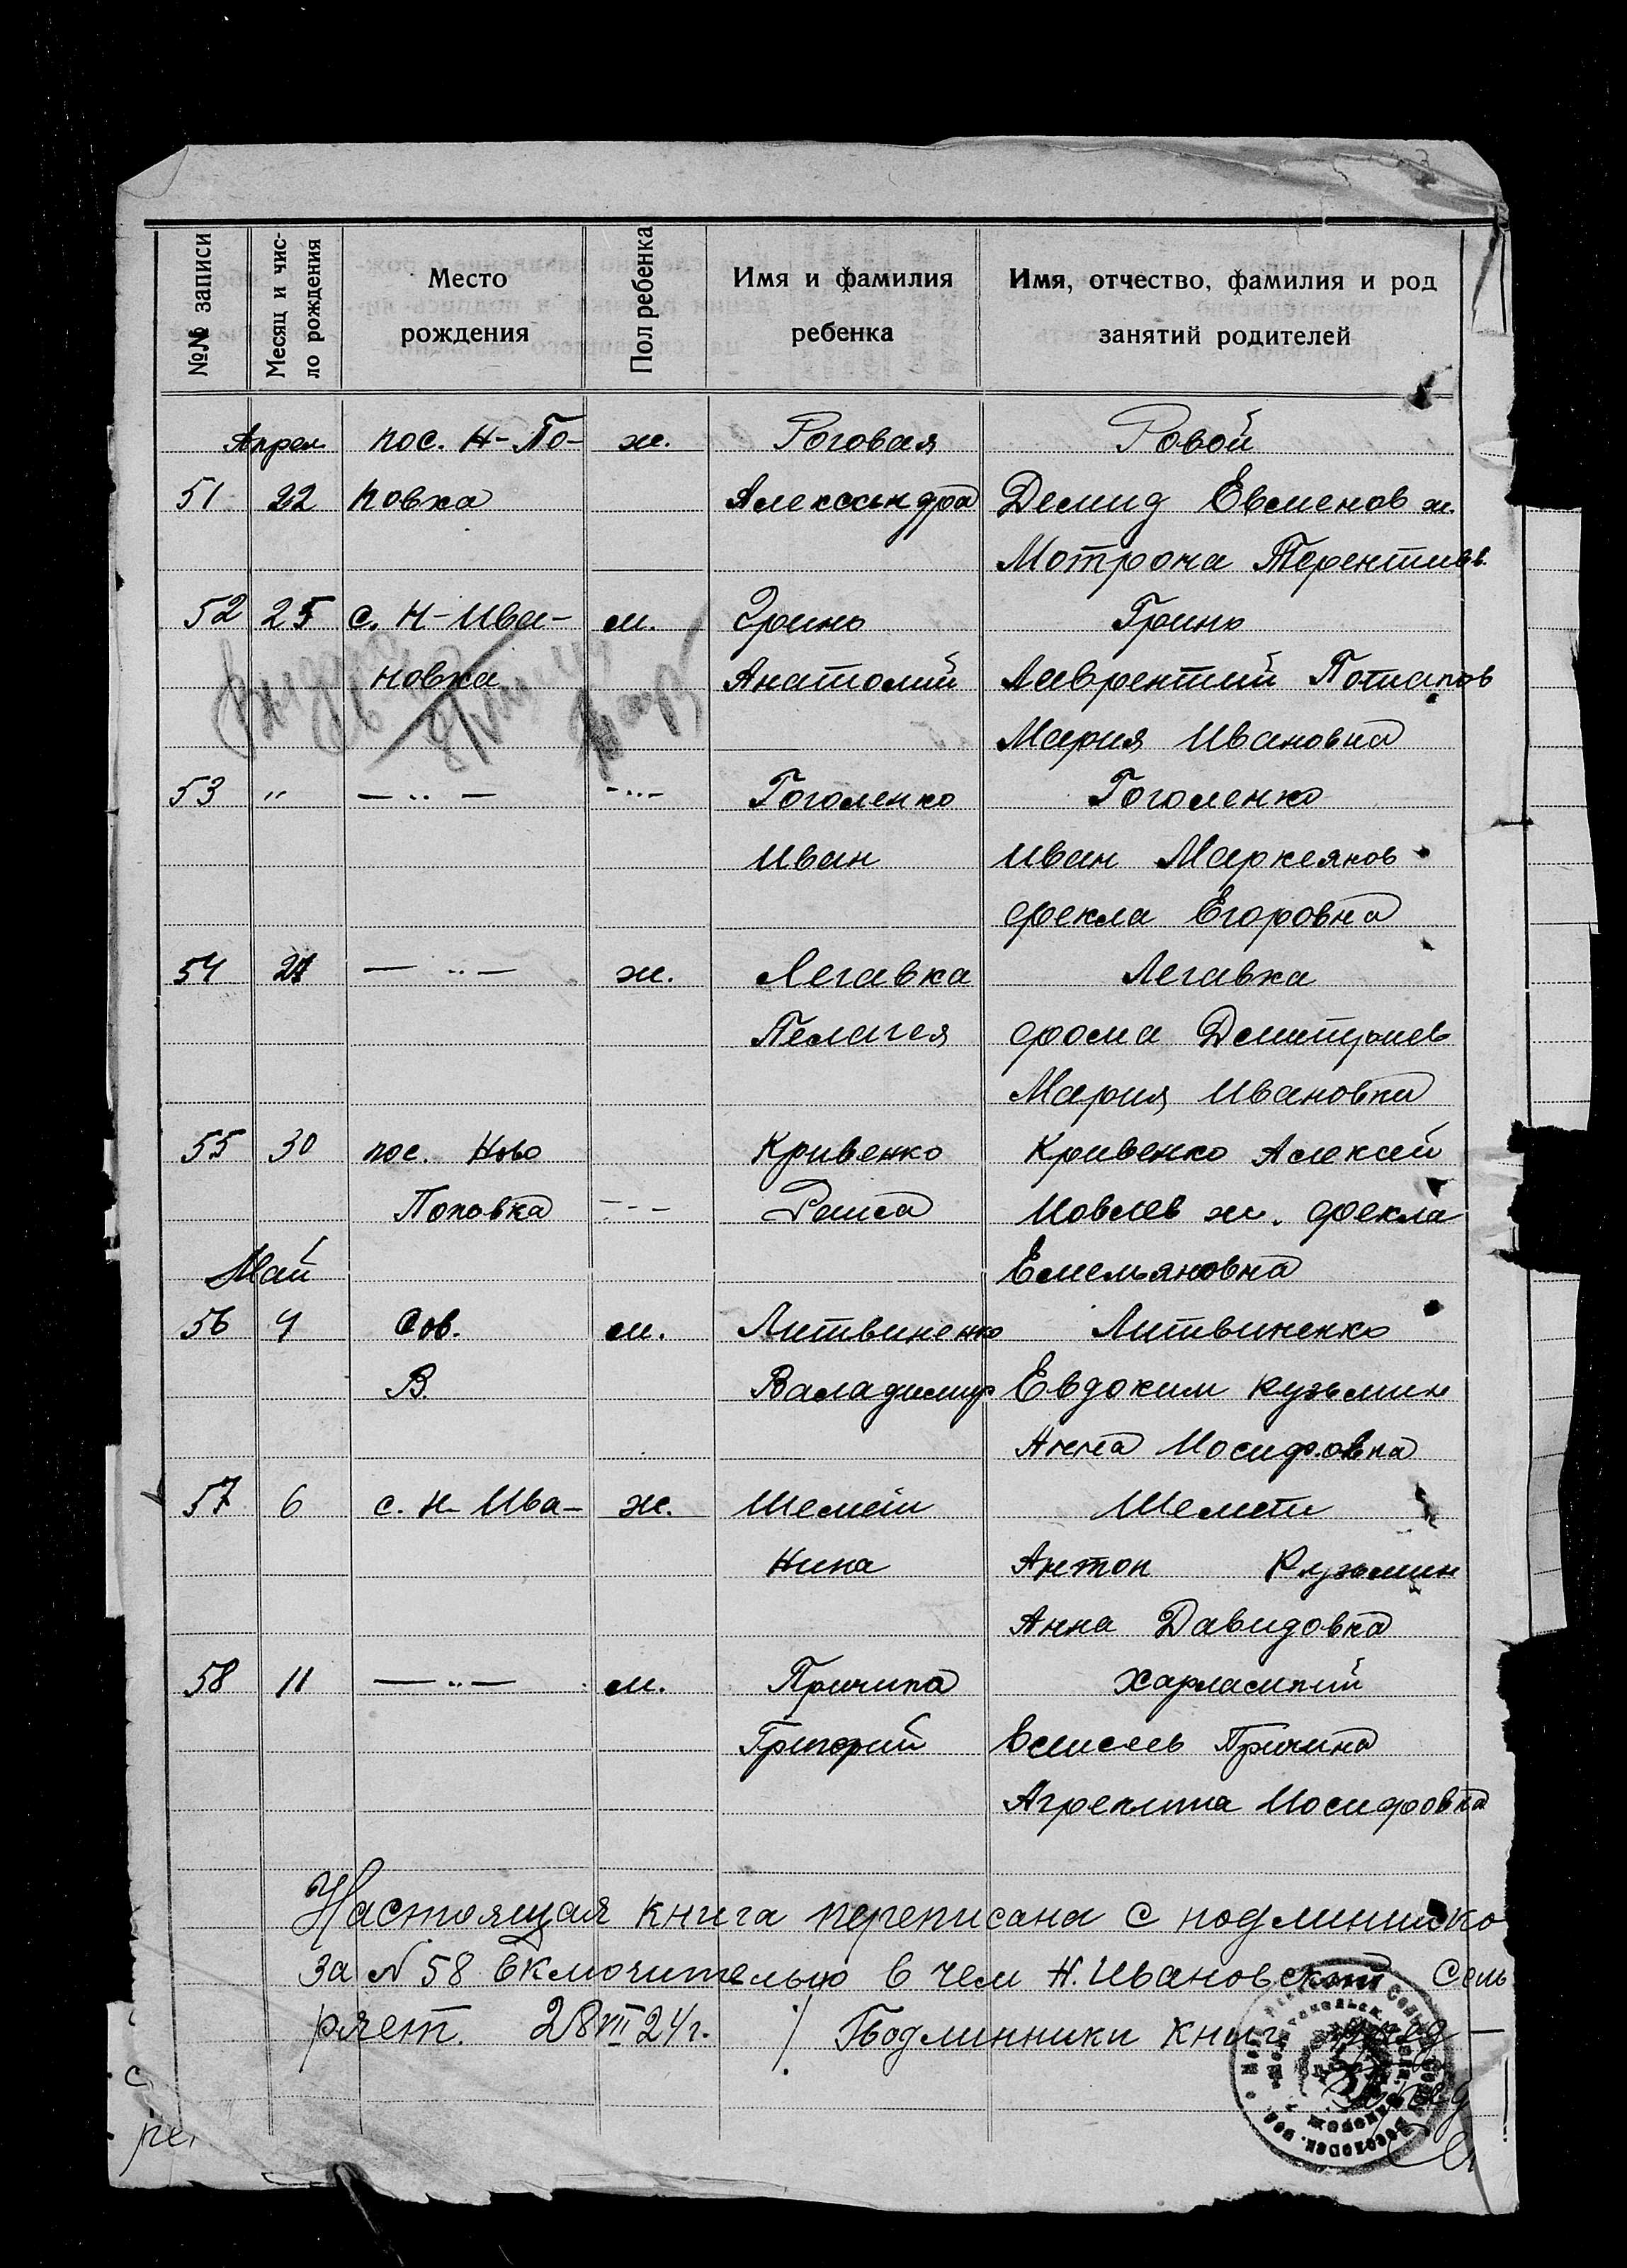 №№ записи
Месяц и чис-
ло рождения
Место
рождения
Пол ребенка
Имя и фамилия
ребенка
Имя, отчество, фамилия и род
занятий родителей
Апрел пос. Н-По- ж. Роговая Ровой
51 22 повка Александра Демид Евменов ж.
Мотрона Терентиев.
52 25 с. Н-Ива- м. Грино Грино
новка Анатолий Лаврентий Потапов
Мария Ивановна
53 " — ·· — - ·· - Гоголенко Гоголенко
Иван Иван Маркеянов
Фекла Егоровна
54 27 — ·· — ж. Легавка Легавка
Пелагея Фома Дмитриев
Мария Ивановна
55 30 пос. Ново Кривенко Кривенко Алексей
Поповка - - - Раиса Иовлев ж. Фекла
Май Емельяновна
56 4 Сов. м. Литвиненко Литвиненко
В. Валадимир Евдоким Кузьмин
Анна Иосифовна
57 6 с. Н-Ива- ж. Шемети Шемети
Нина Антон Кузьмин
Анна Давидовна
58 11 — ·· — м. Причина Харлампий
Григорий Причина
Иосифовна
Настоящая книга переписана с
за № 58 включительно в чем Н. Ивановский Сель
28 VIII 24 г. Подлинники книг